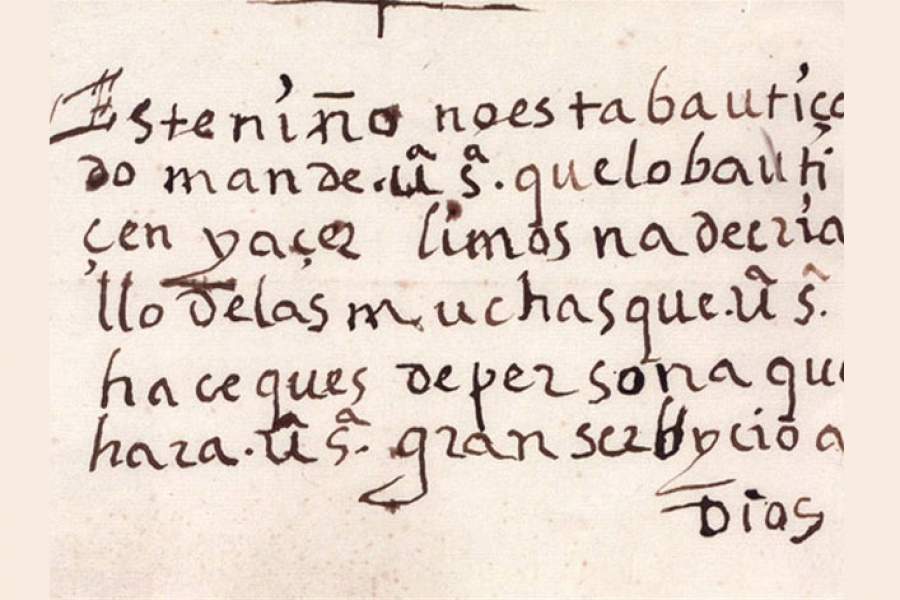 Este niño no esta bautiça
do mande. Ua sa. que lo bauti
çen y açer limosna de cria
llo de las muchas que. Ua s.
hace ques de persona que
hara. Ua sa. gran serbycio a
Dios